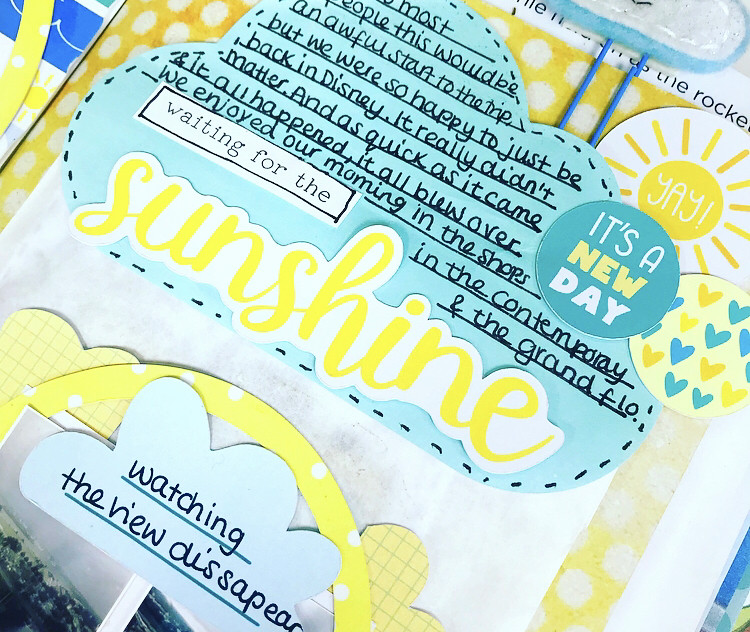 most
people this would be
an awful start to the trip
but we were so happy to just be
back in Disney. It really didn't
matter. And as quick as it came
& It all happened, it all blew over
we enjoyed our morning in the shops
in the contemporary
& the grand flo.
waiting for the
sunshine
as the rocke
YAY!
IT'S A
NEW
DAY
watching
the view dissapear